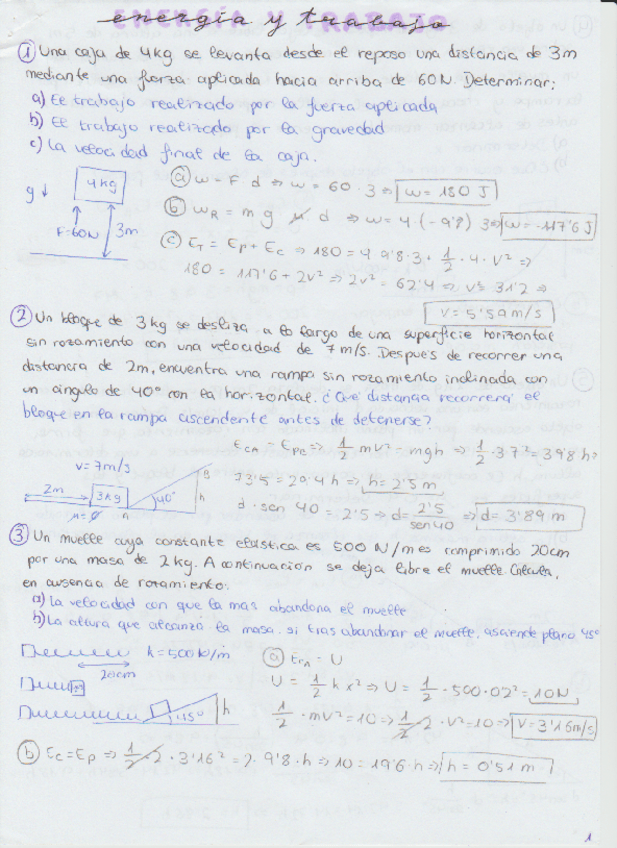 energía y trabajo
① Una caja de 4kg se levanta desde el reposo una distancia de 3m
mediante una fuerza aplicada hacia arriba de 60N. Determinar:
a) El trabajo realizado por la fuerza aplicada
b) El trabajo realizado por la gravedad
c) La velocidad final de la caja.
g ↓ 4kg F=60N 3m
ⓐ W = F · d ⇒ W = 60 · 3 ⇒ W = 180 J
ⓑ WR = m g d ⇒ W = 4 · (-9'8) 3 ⇒ W = -117'6 J
ⓒ ET = Ep + Ec ⇒ 180 = 4 9'8 · 3 + 1/2 · 4 · V² ⇒
180 = 117'6 + 2v² ⇒ 2v² = 62'4 ⇒ v= 31'2 ⇒
V = 5'59 m/s
② Un bloque de 3kg se desliza a lo largo de una superficie horizontal
sin rozamiento con una velocidad de 7m/s. Después de recorrer una
distancia de 2m, encuentra una rampa sin rozamiento inclinada con
un ángulo de 40° con la horizontal. ¿Qué distancia recorrerá el
bloque en la rampa ascendente antes de detenerse?
EcA = EpB ⇒ 1/2 mV² = mgh ⇒ 1/2 · 3 7² = 3 9'8 h ⇒
73'5 = 29'4 h ⇒ h = 2'5 m
d · sen 40 = 2'5 ⇒ d = 2'5/sen 40 ⇒ d = 3'89 m
V = 7m/s
2m 3kg 40° B h
μ = 0 A
③ Un muelle cuya constante elástica es 500 N/m es comprimido 20cm
por una masa de 2kg. A continuación se deja libre el muelle. Calcula,
en ausencia de rozamiento:
a) La velocidad con que la mas abandona el muelle
b) La altura que alcanza la masa, si tras abandonar el muelle, asciende plano 45°
k = 500 N/m
20cm
45° h
ⓐ EcA = U
U = 1/2 k x² ⇒ U = 1/2 · 500 · 0'2² = 10N
1/2 · mV² = 10 ⇒ 1/2 · 2 · V² = 10 ⇒ V = 3'16m/s
ⓑ Ec = Ep ⇒ 1/2 · 2 · 3'16² = 2 · 9'8 · h ⇒ 10 = 19'6 · h ⇒ h = 0'51 m
1